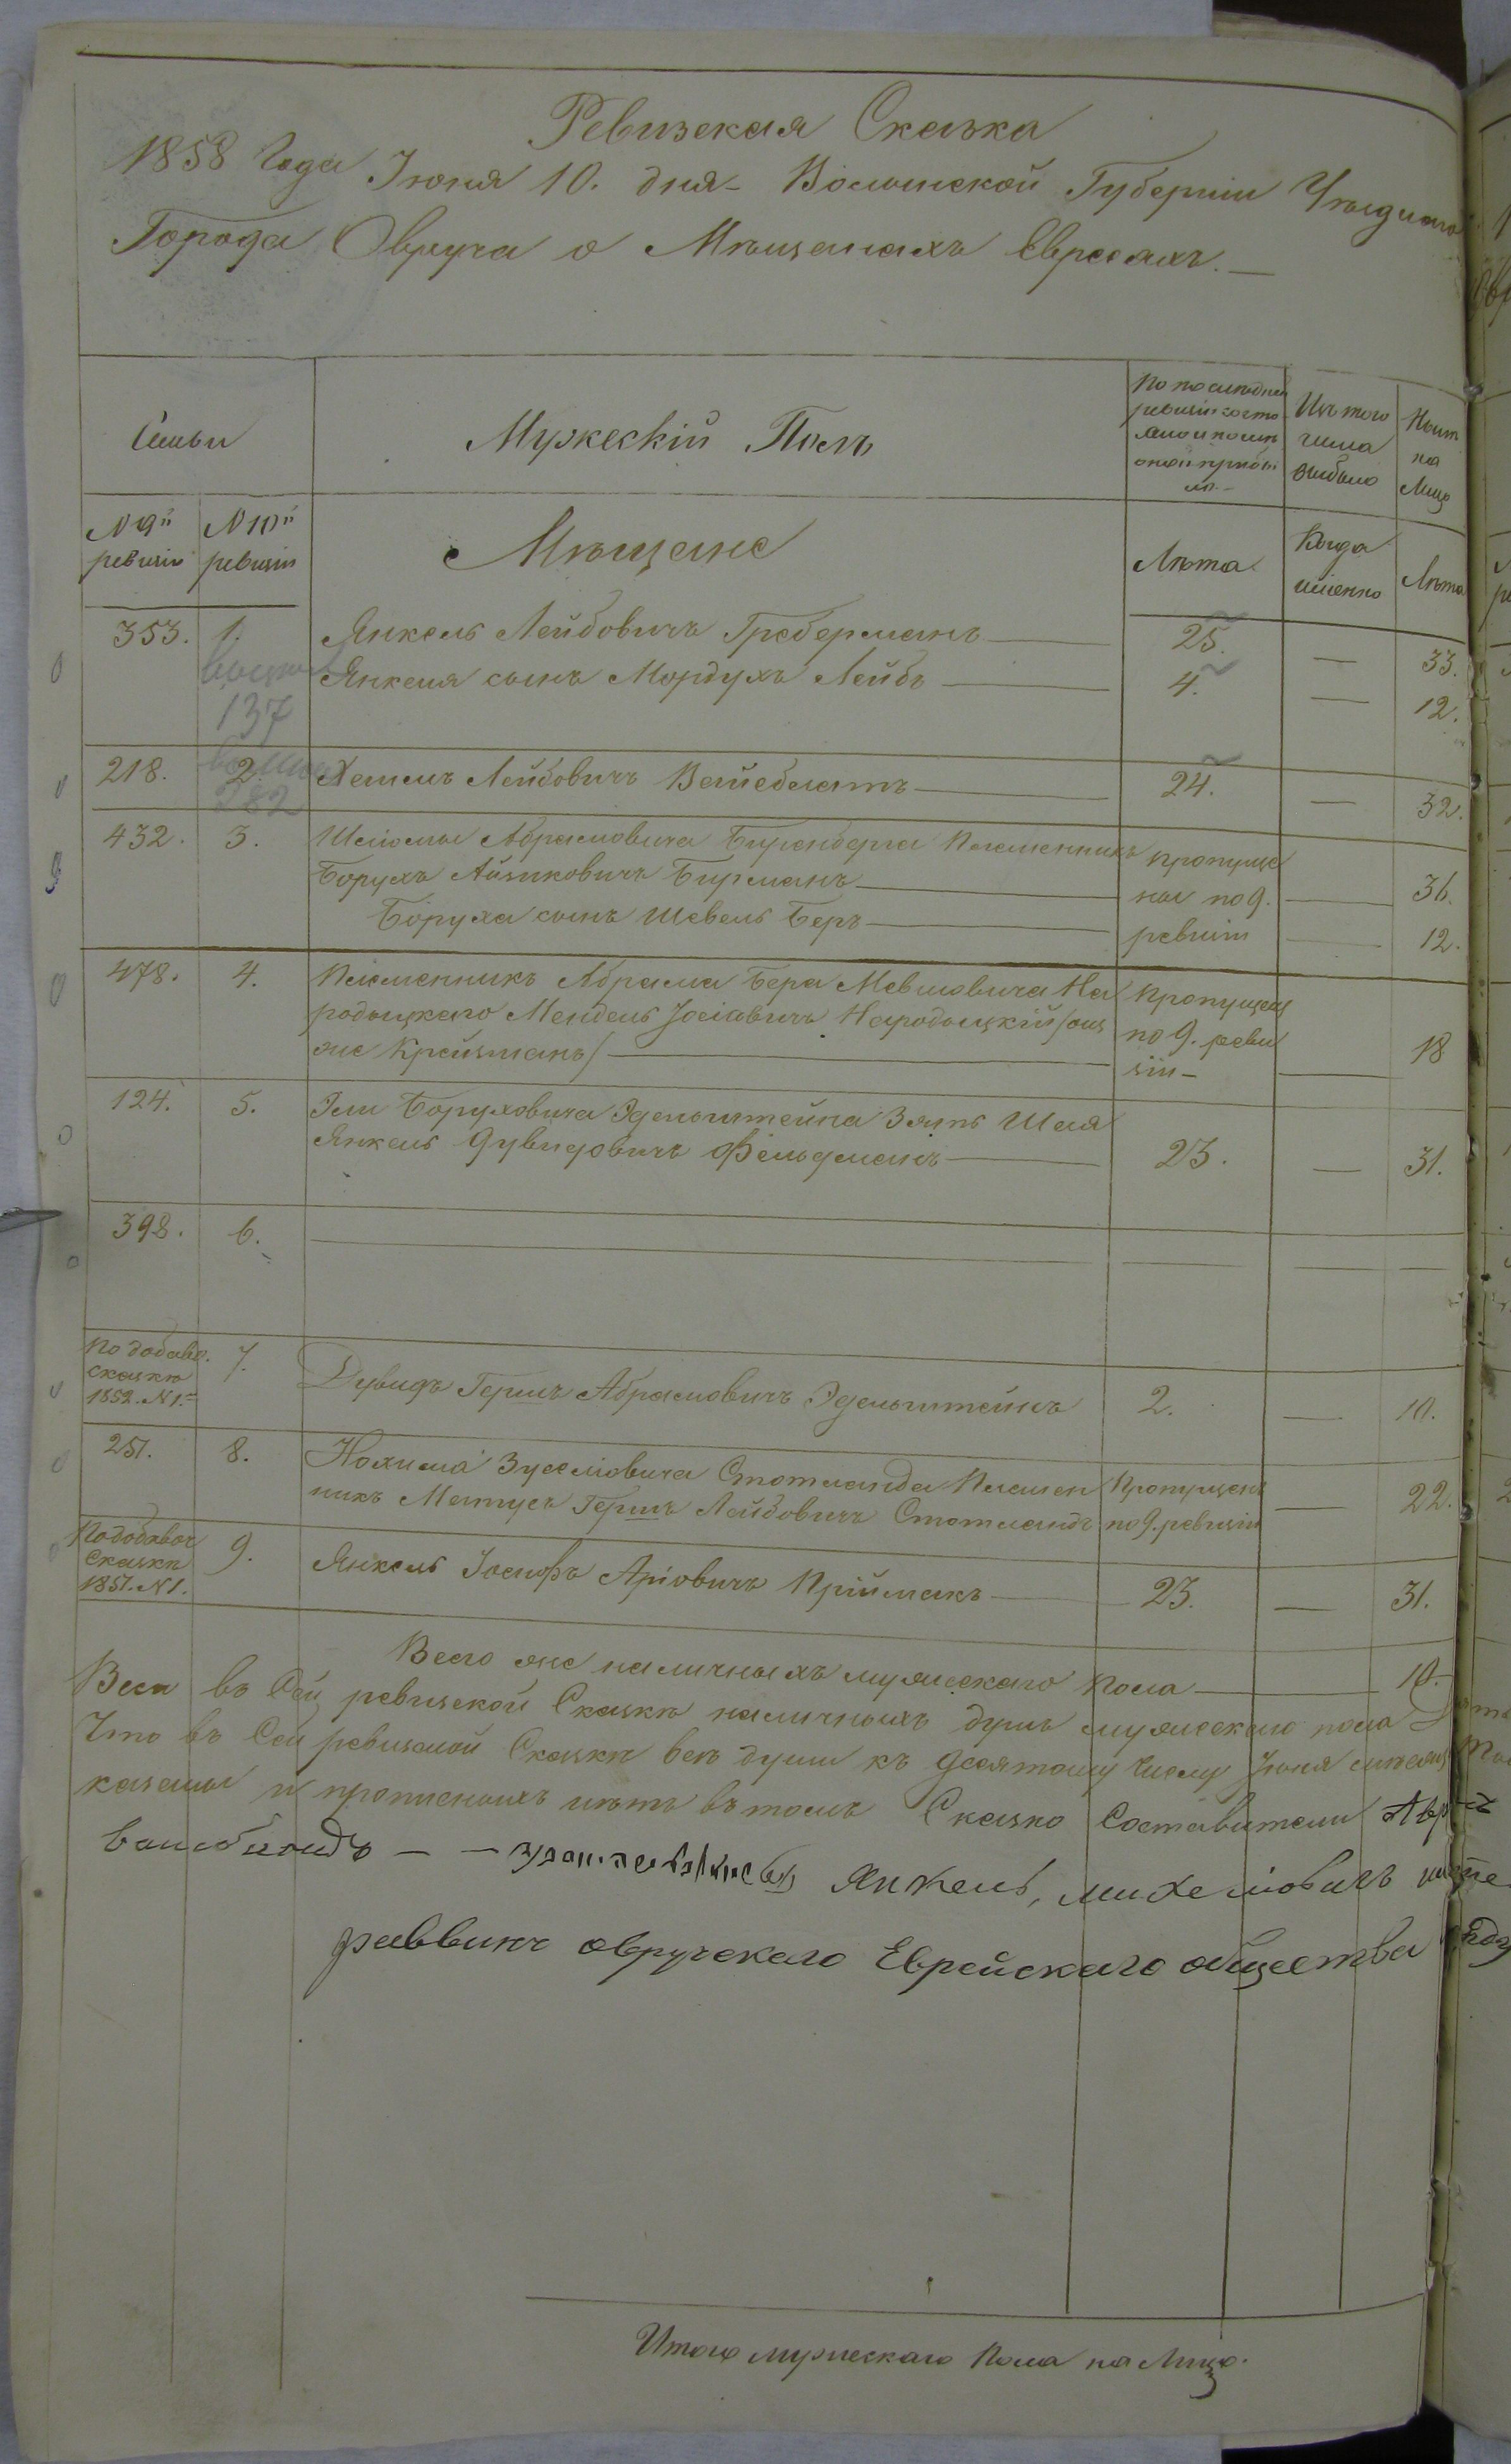 Ревизская Сказка
1858 Года Июня 10. дня - Волынской Губернии Уѣзднаго
Города Овруча о Мѣщанахъ Евреяхъ. —
Семьи
Мужескій Полъ
По послѣдней
ревизіи состо
яло и послѣ
оной прибы
ло -
Изъ того
числа
выбыло
Нынѣ
на
Лицо
N 9й ревизіи
N 10й ревизіи
Мѣщане
Лѣта
Когда
именно
Лѣта
353. 1. Янкель Лейбовичъ Греберманъ — 25. — 33.
Янкеля сынъ Мордухъ Лейбъ — 4. — 12.
137
218. 2. Лейбовичъ — 24. — 32.
282
432. 3. Шліомы Абрамовича Биренберга Племенникъ пропуще
Борухъ Айзиковичъ Бирманъ — ны по 9. — 36.
Боруха сынъ Шевель Беръ — ревизіи — 12.
478. 4. Племенникъ Абрама Бера Мевшовича На Пропущенъ
родыцкаго Мендель Іосіовичъ Народыцкій /онъ по 9. реви 18
же Крейзманъ/ — зіи - —
124. 5. Эли Боруховича Эдельштейна Зять Шая
Янкель Дувидовичъ Фельдманъ — 23. — 31.
398. 6. — — — —
По добавоч. 7.
сказкѣ
1852. N 1. Дувидъ Гершъ Абрамовичъ Эдельштейнъ 2. — 10.
251. 8. Нохима Зуселіовича Стотланда Племен Пропущенъ — 22.
никъ Матусъ Гершъ Лейбовичъ Стотландъ по 9. ревизіи
По добавоч
Сказкѣ 9. Янкель Іосифъ Аріовичъ Пріймакъ — 23. — 31.
1851. N 1.
Всего же наличныхъ мужескаго Пола — 10.-
Всѣхъ въ Сей ревизской Сказкѣ наличныхъ душъ мужескаго пола
Что въ Сей ревизской Сказкѣ всѣ души къ десятому Числу Июня мѣсяца
казаны и прописныхъ нѣтъ въ томъ Сказко Составители
Янкель, михеліовичъ
раввинъ овручскаго Еврейскаго общества
Итого мужескаго Пола на Лицо.